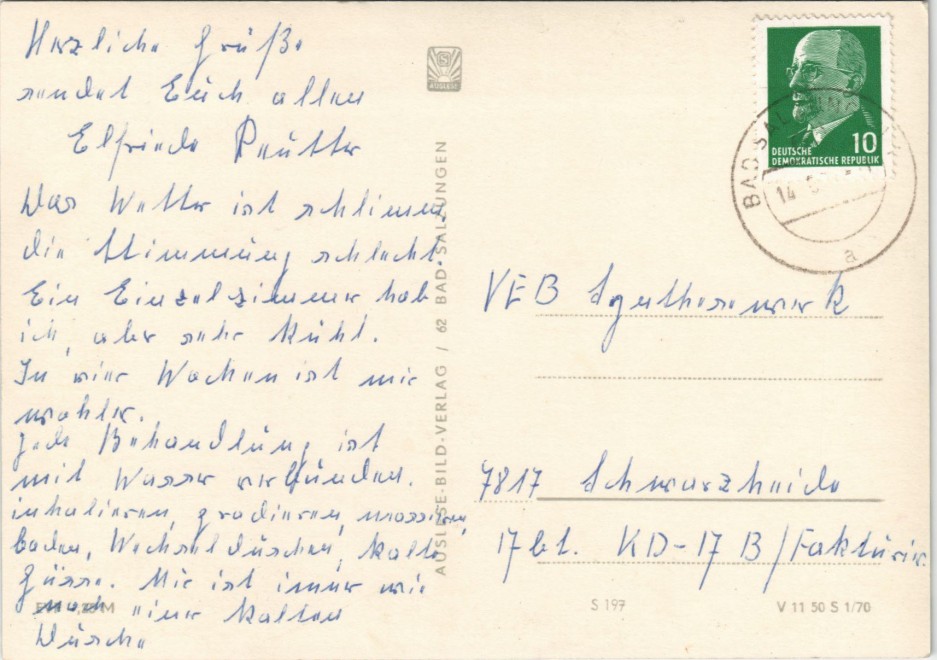 Herzliche Grüße
sendet Euch allen
Elfriede
Das Wetter ist schlimm,
die Stimmung schlecht.
Ein Einzelzimmer hab
ich, aber sehr kühl.
In vier Wochen ist mir
wohler.
Jede Behandlung ist
mit Wasser verbunden.
inhalieren, gradieren, massieren,
baden, Wechselduschen, kalte
Güsse. Mir ist immer wie
nach einer kalten
Dusche
EVP M
AUSLESE
AUSLESE-BILD-VERLAG / 62 BAD SALZUNGEN
10
DEUTSCHE
DEMOKRATISCHE REPUBLIK
BAD SALZUNGEN
14
a
VEB Synthesewerk
7817 Schwarzheide
Abt. KD-17 B/Fakturier.
S 197
V 11 50 S 1/70